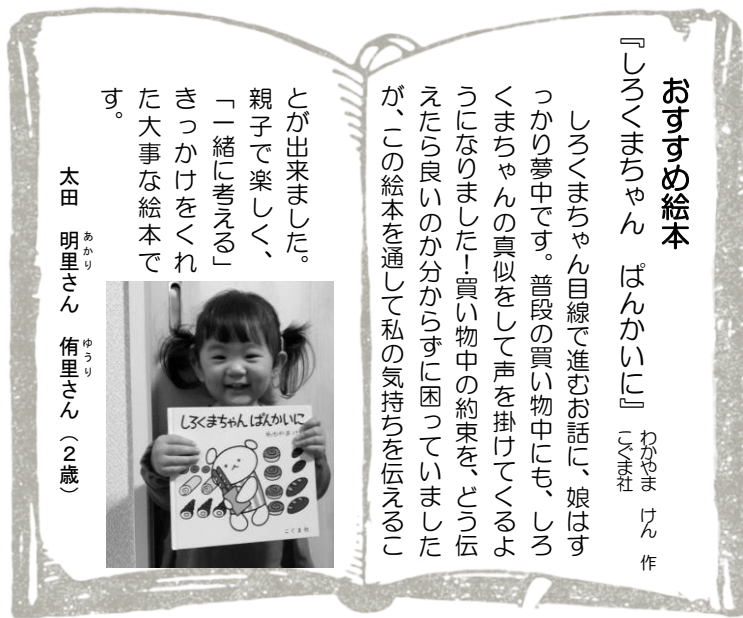 おすすめ絵本
『しろくまちゃん　ぱんかいに』
わかやま　けん　作
こぐま社
しろくまちゃん目線で進むお話に、娘はす
っかり夢中です。普段の買い物中にも、しろ
くまちゃんの真似をして声を掛けてくるよ
うになりました！買い物中の約束を、どう伝
えたら良いのか分からずに困っていました
が、この絵本を通して私の気持ちを伝えるこ
とが出来ました。
親子で楽しく、
「一緒に考える」
きっかけをくれ
た大事な絵本で
す。
しろくまちゃんぱんかいに
こぐま社
太田　明里さん　侑里さん（２歳）
あかり
ゆうり